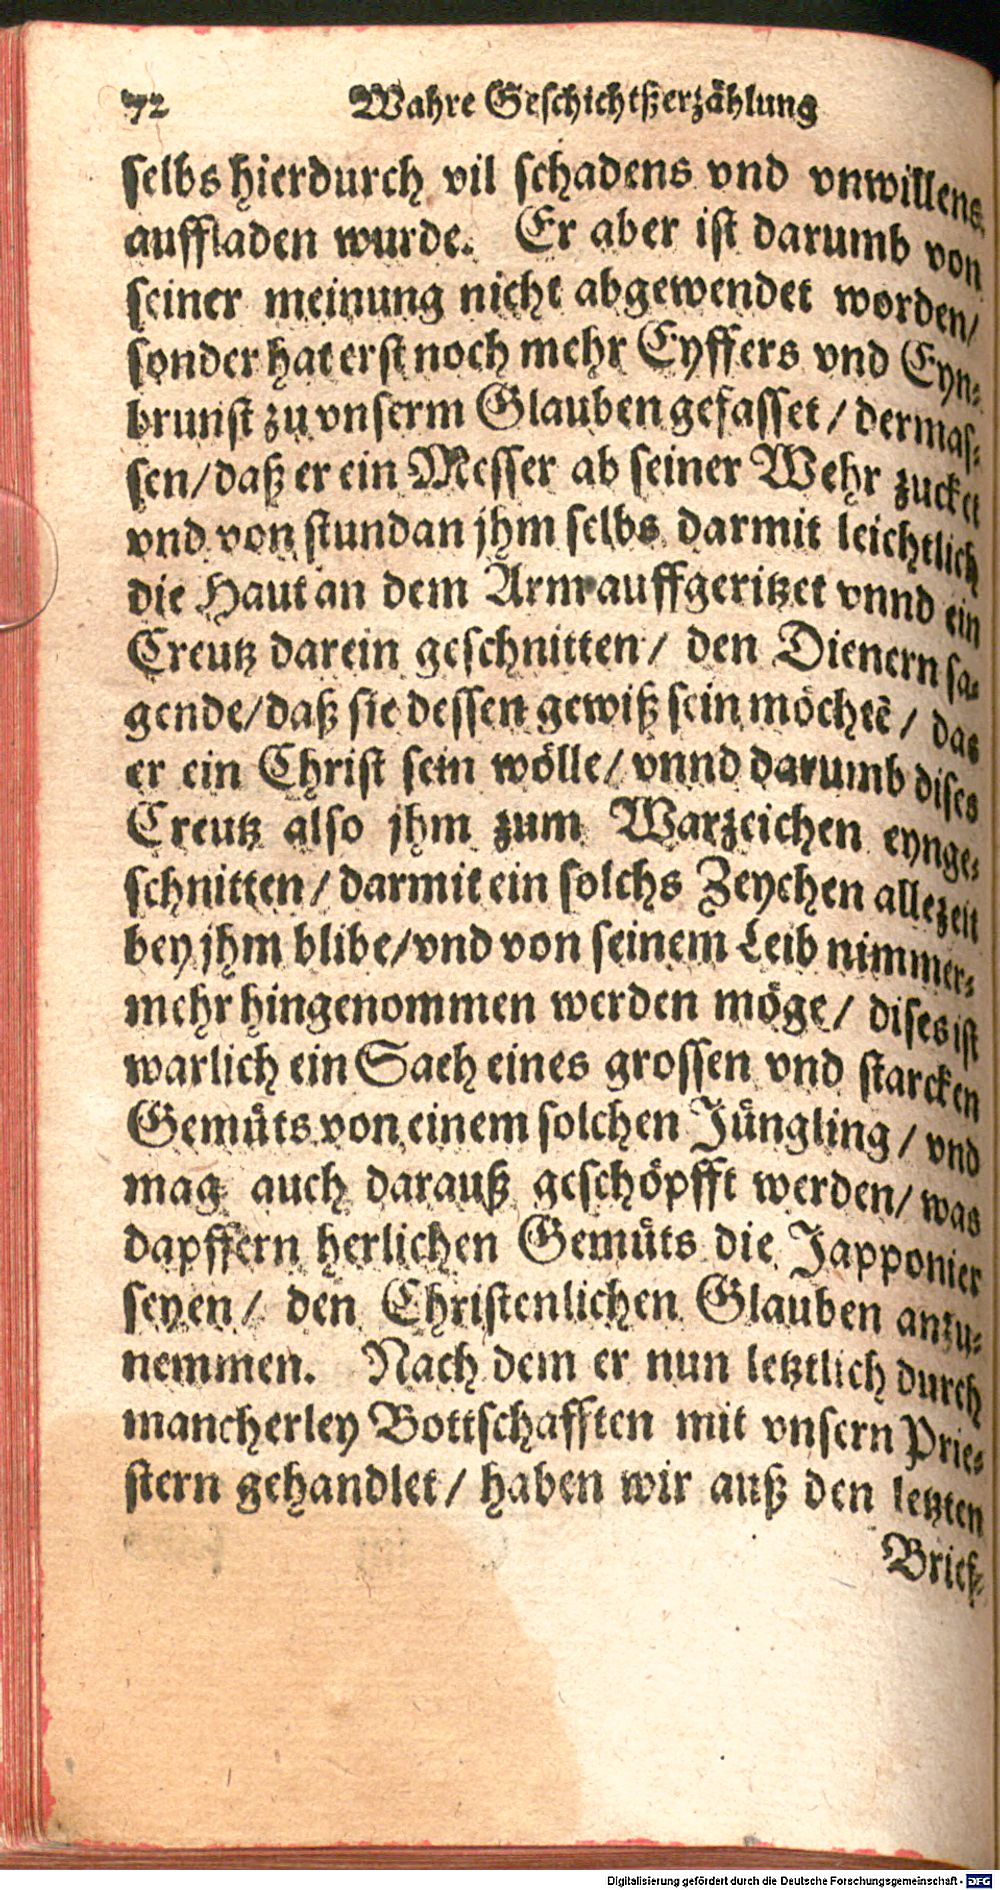 72 Wahre Geschichtßerzählung
selbs hierdurch vil schadens vnd vnwillens
auffladen wurde. Er aber ist darumb von
seiner meinung nicht abgewendet worden/
sonder hat erst noch mehr Eyffers vnd Eyn-
brunst zu vnserm Glauben gefasset / dermas-
sen/daß er ein Messer ab seiner Wehr zucket
vnd von stundan jhm selbs darmit leichtlich
die Haut an dem Arm auffgeritzet vnnd ein
Creutz darein geschnitten / den Dienern sa-
gende/daß sie dessen gewiß sein möchtẽ / das
er ein Christ sein wölle/ vnnd darumb dises
Creutz also jhm zum Warzeichen eynge-
schnitten / darmit ein solchs Zeychen allezeit
bey jhm blibe/vnd von seinem Leib nimmer-
mehr hingenommen werden möge / dises ist
warlich ein Sach eines grossen vnd starcken
Gemüts von einem solchen Jüngling / vnd
mag auch darauß geschöpfft werden/ was
dapffern herlichen Gemüts die Japponier
seyen / den Christenlichen Glauben anzu-
nemmen. Nach dem er nun letztlich durch
mancherley Bottschafften mit vnsern Prie-
stern gehandlet / haben wir auß den letzten
Brief-
Digitalisierung gefördert durch die Deutsche Forschungsgemeinschaft - DFG